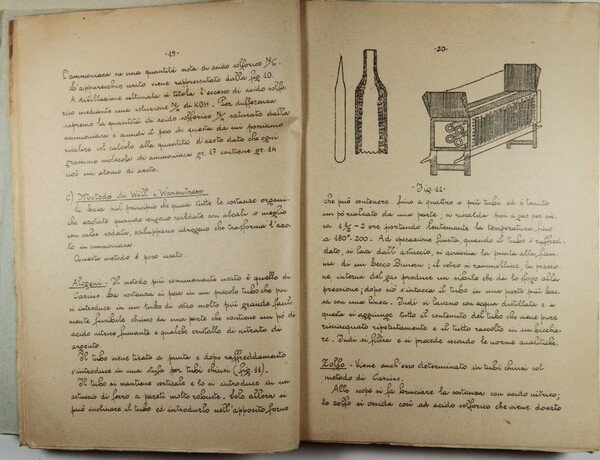 -19-
l'ammoniaca su una quantità nota di acido solforico N/4.
L'apparecchio usato viene rappresentato dalla fig. 10.
A distillazione ultimata si titola l'eccesso di acido solfo-
rico mediante una soluzione N/4 di KOH. Per differenza
sapremo la quantità di acido solforico N/4 saturato dalla
ammoniaca e quindi il peso di questa da cui possiamo
risalire col calcolo alla quantità d'azoto dato che ogni
grammo molecola di ammoniaca gr. 17 contiene gr. 14
cioè un atomo di azoto.
c) Metodo di Will e Warentrapp
Si basa sul principio che quasi tutte le sostanze organi-
che azotate quando vengono scaldate con alcali o meglio
con calce sodata, sviluppano idrogeno che trasforma l'azo-
to in ammoniaca.
Questo metodo è poco usato.
Alogeni - Il metodo più comunemente usato è quello di
Carius. La sostanza si pesa in un piccolo tubo che poi
si introduce in un tubo di vetro molto più grande facil-
mente fusibile chiuso da una parte che contiene un po' di
acido nitrico fumante e qualche cristallo di nitrato di
argento.
Il tubo viene tirato a punta e dopo raffreddamento
s'introduce in una stufa per tubi chiusi (fig. 11).
Il tubo si mantiene verticale e lo si introduce in un
astuccio di ferro a pareti molto robuste. Solo allora si
può inclinare il tubo ed introdurlo nell'apposito forno
-20-
Fig. 11-
che può contenere fino a quattro o più tubi ed è tenuto
un po' rialzato da una parte; si riscalda poi a gas per cir-
ca 1 1/2 - 2 ore portando lentamente la temperatura fino
a 180°-200. Ad operazione finita, quando il tubo è raffred-
dato, si leva dall'astuccio, si avvicina la punta alla fiam-
ma di un becco Bunsen; il vetro si rammollisce, la pressio-
ne interna del gas produce un sibilo che dà lo sfogo alla
pressione; dopo ciò s'intacca il tubo in una parte più bas-
sa con una lima. Indi si lavano con acqua distillata e a
questa si aggiunge tutto il contenuto del tubo che viene pure
risciacquato ripetutamente e il tutto raccolto in un bicchie-
re. Indi si filtra e si procede secondo le norme analitiche.
Zolfo - Viene anch'esso determinato in tubi chiusi col
metodo di Carius.
Allo scopo si fa bruciare la sostanza con acido nitrico;
lo zolfo si ossida così ad acido solforico che viene dosato